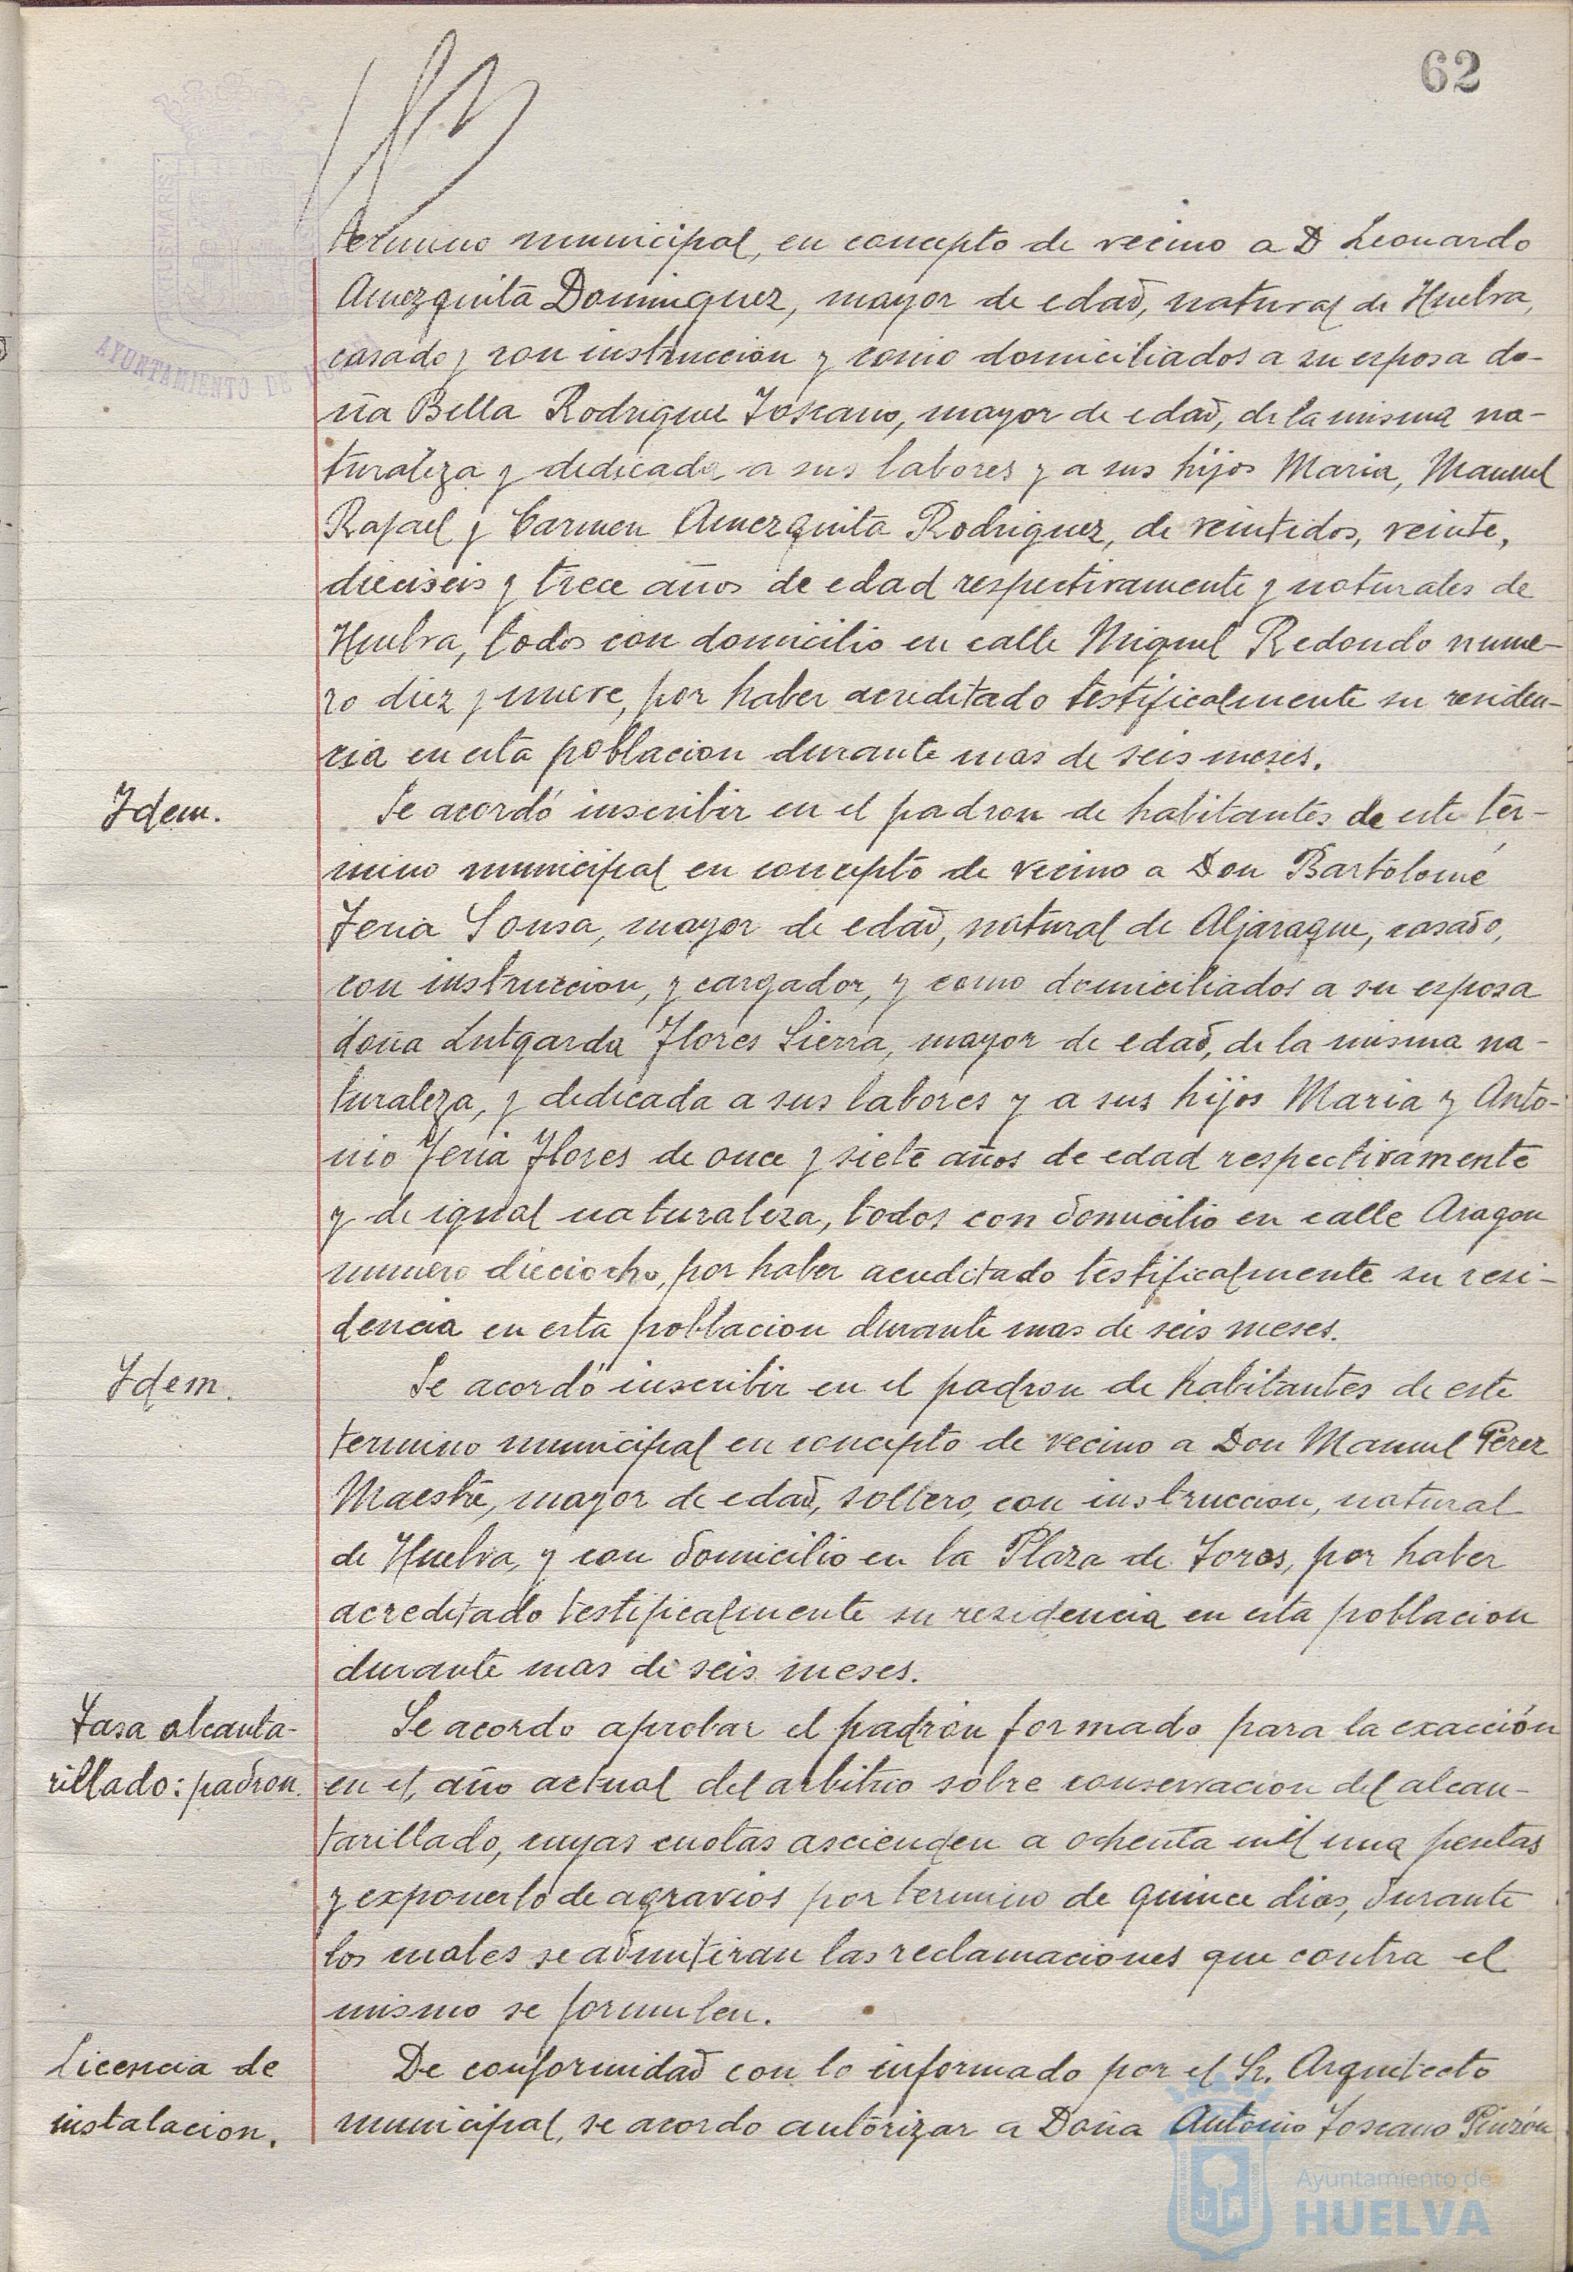 62
termino municipal, en concepto de vecino a D Leonardo
Amezquita Dominguez, mayor de edad, natural de Huelva,
casado y con instruccion y como domiciliados a su esposa do-
ña Bella Rodriguez Toscano, mayor de edad, de la misma na-
turaleza y dedicada a sus labores y a sus hijos Maria, Manuel
Rafael y Carmen Amezquita Rodriguez, de veintidos, veinte,
dieciseis y trece años de edad respectivamente y naturales de
Huelva, todos con domicilio en calle Miguel Redondo nume-
ro diez y nueve, por haber acreditado testificalmente su residen-
cia en esta poblacion durante mas de seis meses.
Idem.
Se acordó inscribir en el padron de habitantes de este tér-
mino municipal en concepto de vecino a Don Bartolomé
Feria Sousa, mayor de edad, natural de Aljaraque, casado,
con instruccion, y cargador, y como domiciliados a su esposa
doña Lutgarda Flores Sierra, mayor de edad, de la misma na-
turaleza, y dedicada a sus labores y a sus hijos Maria y Anto-
nio Feria Flores de once y siete años de edad respectivamente
y de igual naturaleza, todos con domicilio en calle Aragon
numero dieciocho, por haber acreditado testificalmente su resi-
dencia en esta poblacion durante mas de seis meses.
Idem.
Se acordó inscribir en el padron de habitantes de este
termino municipal en concepto de vecino a Don Manuel Perez
Maestre, mayor de edad, soltero, con instruccion, natural
de Huelva, y con domicilio en la Plaza de Toros, por haber
acreditado testificalmente su residencia en esta poblacion
durante mas de seis meses.
Tasa alcanta-
rillado: padron.
Se acordo aprobar el padrón formado para la exacción
en el año actual del arbitrio sobre conservacion del alcan-
tarillado, cuyas cuotas ascienden a ochenta mil una pesetas
y exponerlo de agravios por termino de quince dias, durante
los cuales se admitiran las reclamaciones que contra el
mismo se formulen.
Licencia de
instalacion.
De conformidad con lo informado por el Sr. Arquitecto
municipal, se acordo autorizar a Doña Antonio Toscano Pinzón
AYUNTAMIENTO DE HUELVA
Ayuntamiento de
HUELVA